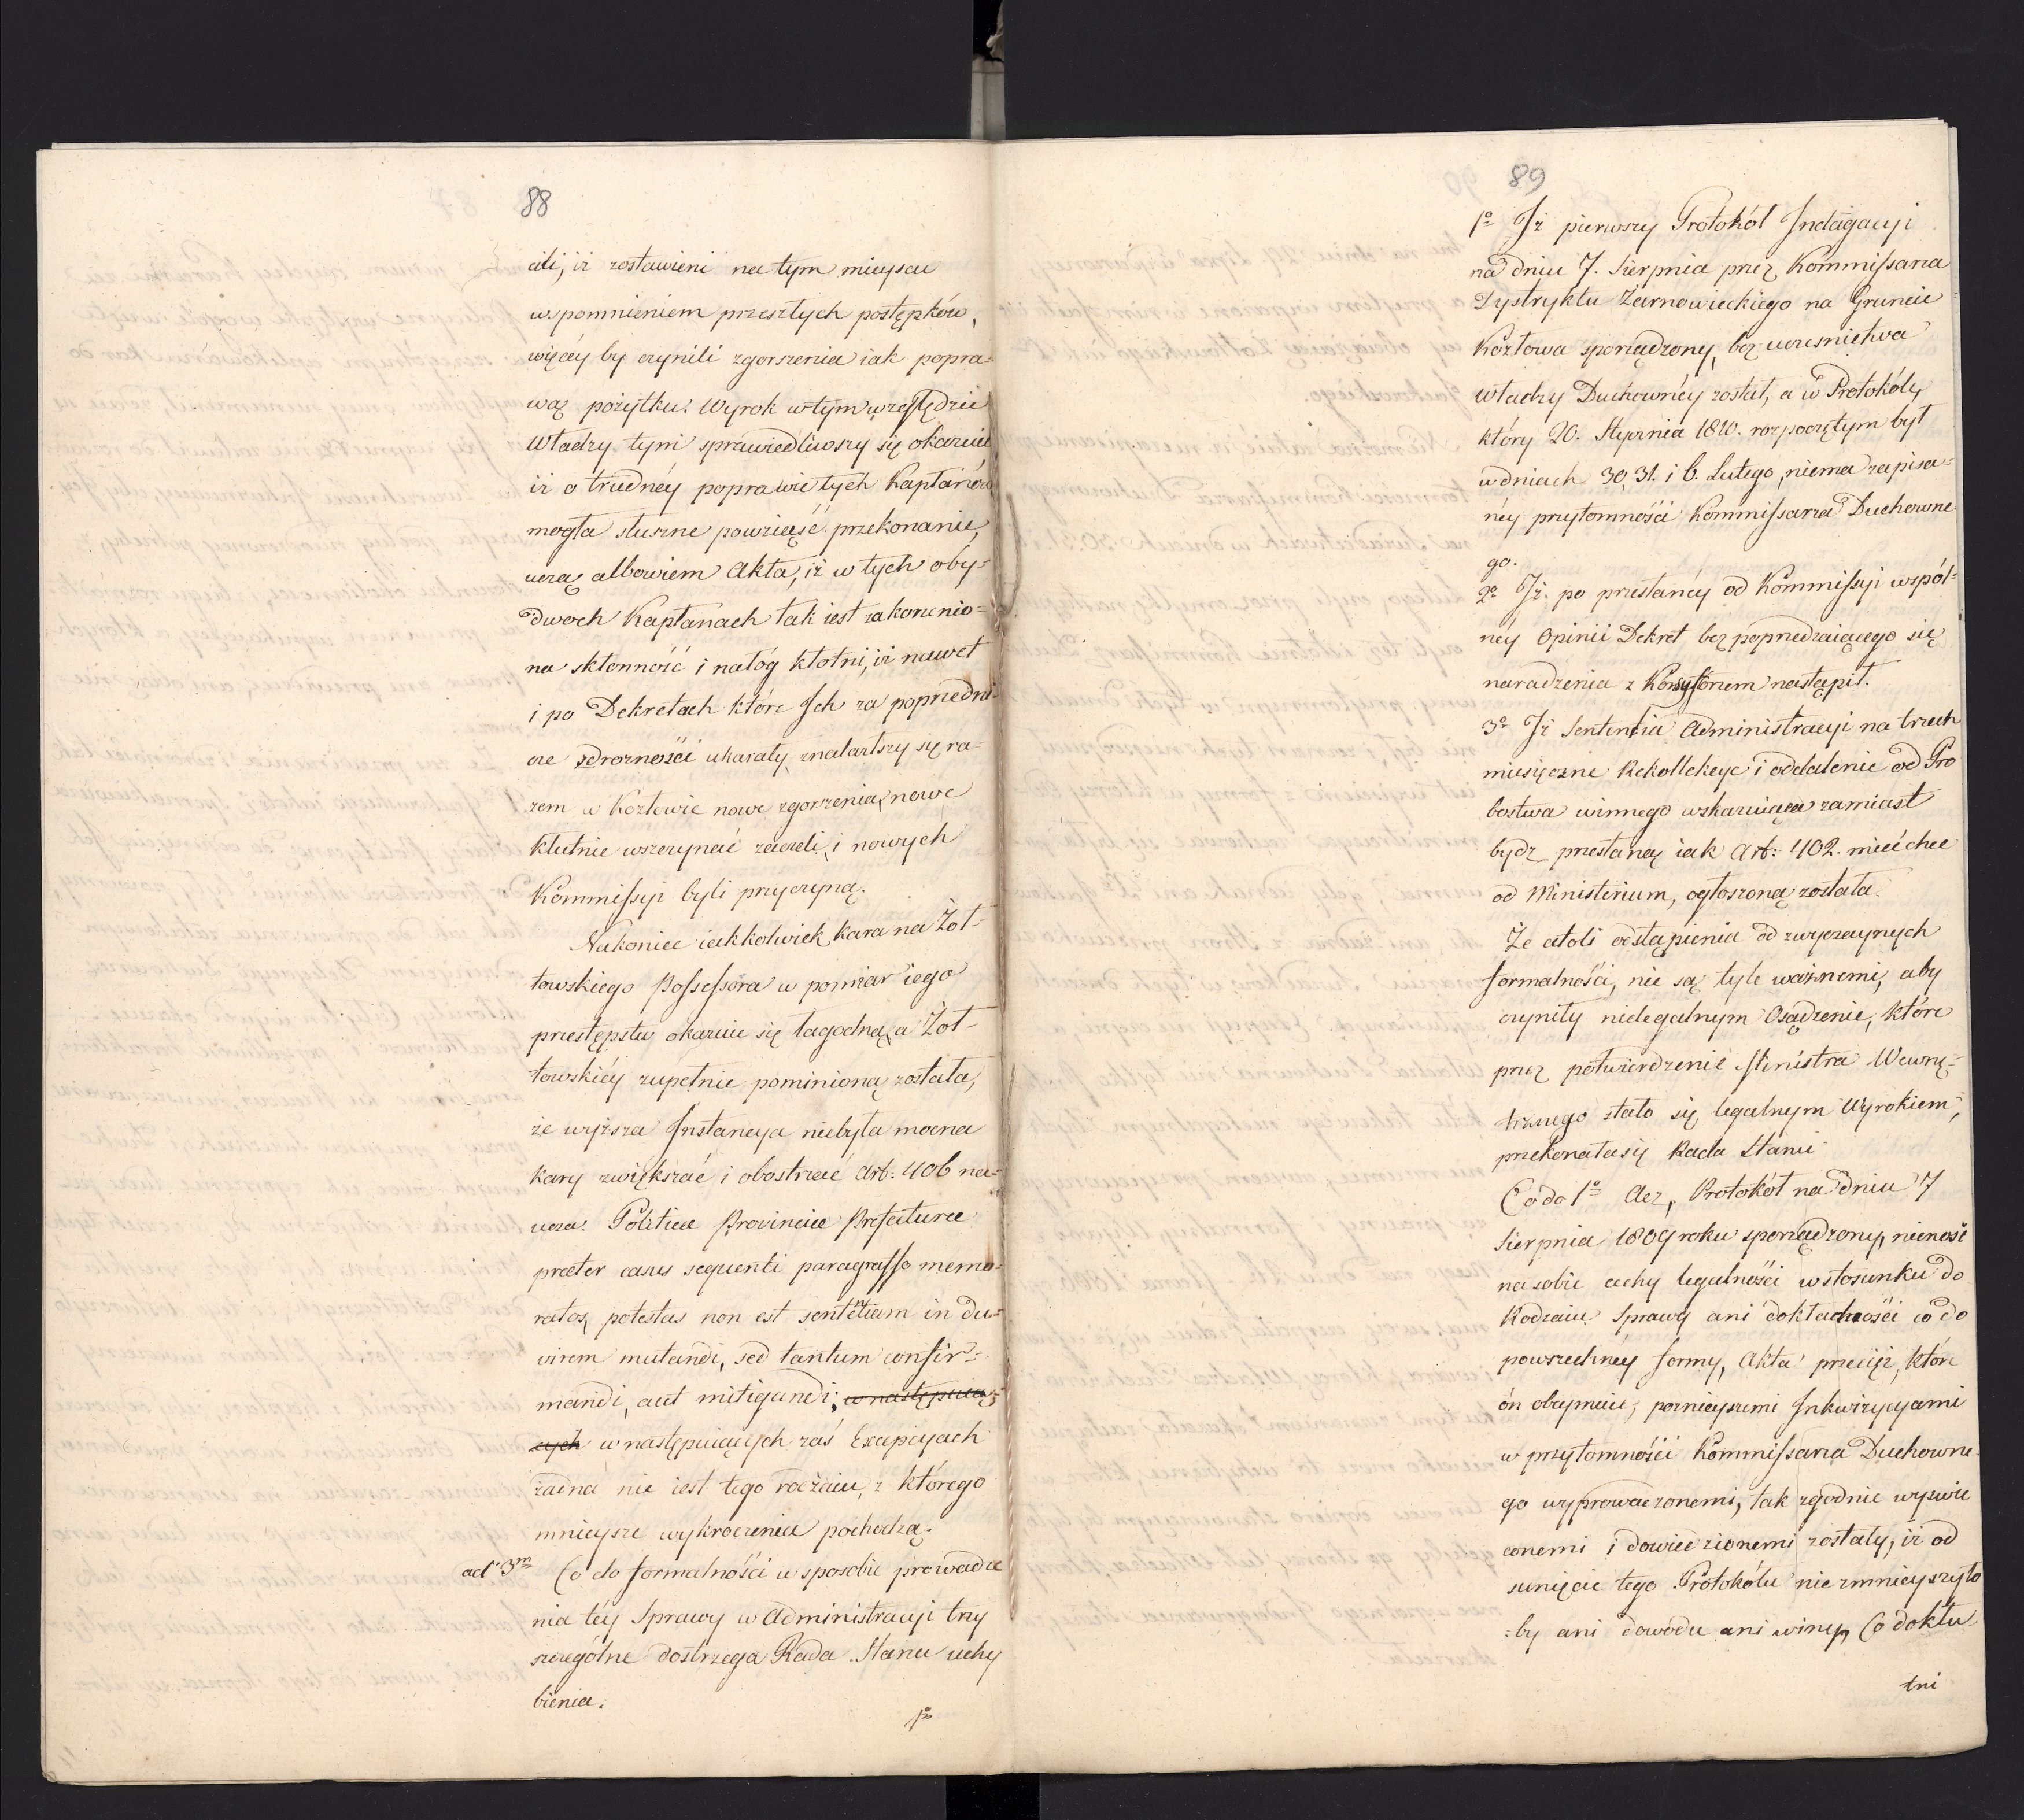 88
cili, iż zostawieni na tym mieyscu
wspomnieniem przeszłych postępków,
więcéy by czynili zgorszenia iak popra-
wą pożytku. Wyrok w tym względzie
Władzy tym sprawiedliwszy się okazuie
iż o trudnéy poprawie tych Kapłanów
mogła słuszne powziąść przekonanie,
uczą albowiem Akta, iż w tych oby-
dwoch Kapłanach tak iest zakorzenio-
na skłonność i nałóg kłotni, iż nawet
i po Dekretach które Ich za poprzedni-
cze zdrożności ukarały, znalazłszy się ra-
zem w Kozłowie nowe zgorszenia, nowe
kłutnie wszczynać zaczeli, i nowych
Kommissyi byli przyczyną.
Nakoniec iakkolwiek kara na Żoł-
towskiego Possessora w pomiar iego
przestępstw okazuie się łagodną, a Żoł-
towskiéy zupełnie pominioną została,
że wyższa Instancya niebyła mocna
kary zwiększać i obostrzać Art: 406 na-
ucza: Politicae Provinciae Praefecturae
praeter casus sequenti paragrapho memo-
ratos, potestas non est sententiam in du-
virem mutandi, sed tantum confir-
mandi, aut mitigandi; w następuią-
cych w następuiących zaś Excepcyach
żadna nie iest tego rodzaiu, z którego
mnieysze wykroczenia pochodzą.
ad 3m Co do formalności w sposobie prowadze
nia téy Sprawy w Administracyi trzy
szczególne dostrzega Rada Stanu uchy
bienia.
1o
89
1o Iż pierwszy Protokół Indagacyi
na dniu 7. Sierpnia przez Kommissarza
Dystryktu Żarnowieckiego na Gruncie
Kozłowa sporządzony, bez uczesnictwa
władzy Duchownéy został, a w Protokóle,
który 20. Stycznia 1810. rozpoczętym był
w dniach 30. 31. i 6. Lutego, niema zapisa-
néy przytomności Kommissarza Duchowne
go.
2o Iż po przesłanéy od Kommissyi wspól-
néy Opinii Dekret bez poprzedzaiącego się
naradzenia z Konsystorzem nastąpił.
3o Iż Sententia Administracyi na trzech
miesięczne Rekollekcye i oddalenie od Pro
bostwa winnego wskazuiąca zamiast
bydz przesłaną iak Art: 402. mieć chce
od Ministerium, ogłoszoną została.
Że atoli odstąpienia od zwyczaynych
formalności, nie są tyle ważnemi, aby
czyniły nielegalnym Osądzenie, które
przez potwierdzenie Ministra Wewnę-
trznego stało się legalnym Wyrokiem,
przekonała się Rada Stanu
Co do 1o Acz, Protokół na dniu 7
Sierpnia 1809 roku sporządzony, nienosi
na sobie cechy legalności w stosunku do
Rodzaiu Sprawy ani dokładności co do
powszechnéy formy, Akta przecięż, które
ón obeymuie, poznieyszemi Inkwizycyami
w przytomności Kommissarza Duchowne
go wyprowadzonemi, tak zgodnie wyświe
conemi i dowiedzionemi zostały, iż od
sunięcie tego Protokółu nie zmnieyszyło
-by ani dowodu ani winy, Co doktu
tni